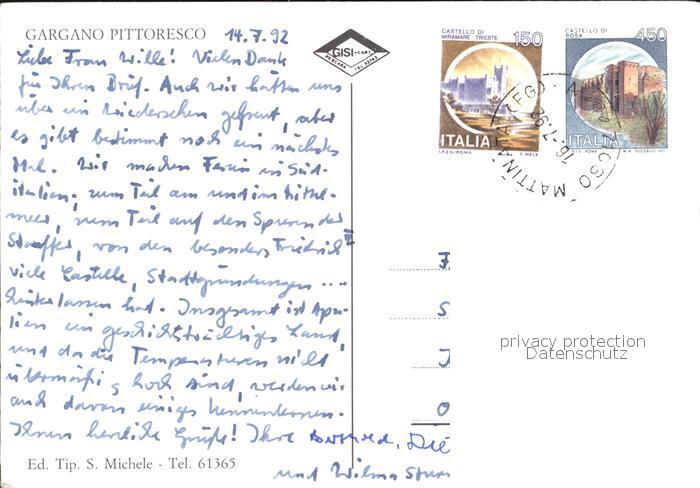 GARGANO PITTORESCO
14.7.92
Liebe Frau Wille! Vielen Dank
für Ihren Brief. Auch wir hätten uns
über ein Wiedersehen gefreut, aber
es gibt bestimmt noch ein nächstes
Mal. Wir machen Ferien in Süd-
italien, zum Teil am und im Mittel-
meer, zum Teil auf den Spuren der
Staufer, von den besonders Friedrich II
viele Castelle, Stadtgründungen ...
hinterlassen hat. Insgesamt ist Apu-
lien ein geschichtsträchtiges Land,
und da die Temperaturen nicht
übermäßig hoch sind, werden wir
auch davon einiges kennenlernen.
Ihnen herzliche Grüße! Ihre
und Wilma
Ed. Tip. S. Michele - Tel. 61365
GISI-CART.
CASTELLO DI
MIRAMARE - TRIESTE
150
ITALIA
I.P.Z.S.-ROMA
T. MELE
CASTELLO DI
BOSA
450
ITALIA
ROMA
MATTINATA (FG)
16-7-92
privacy protection
Datenschutz